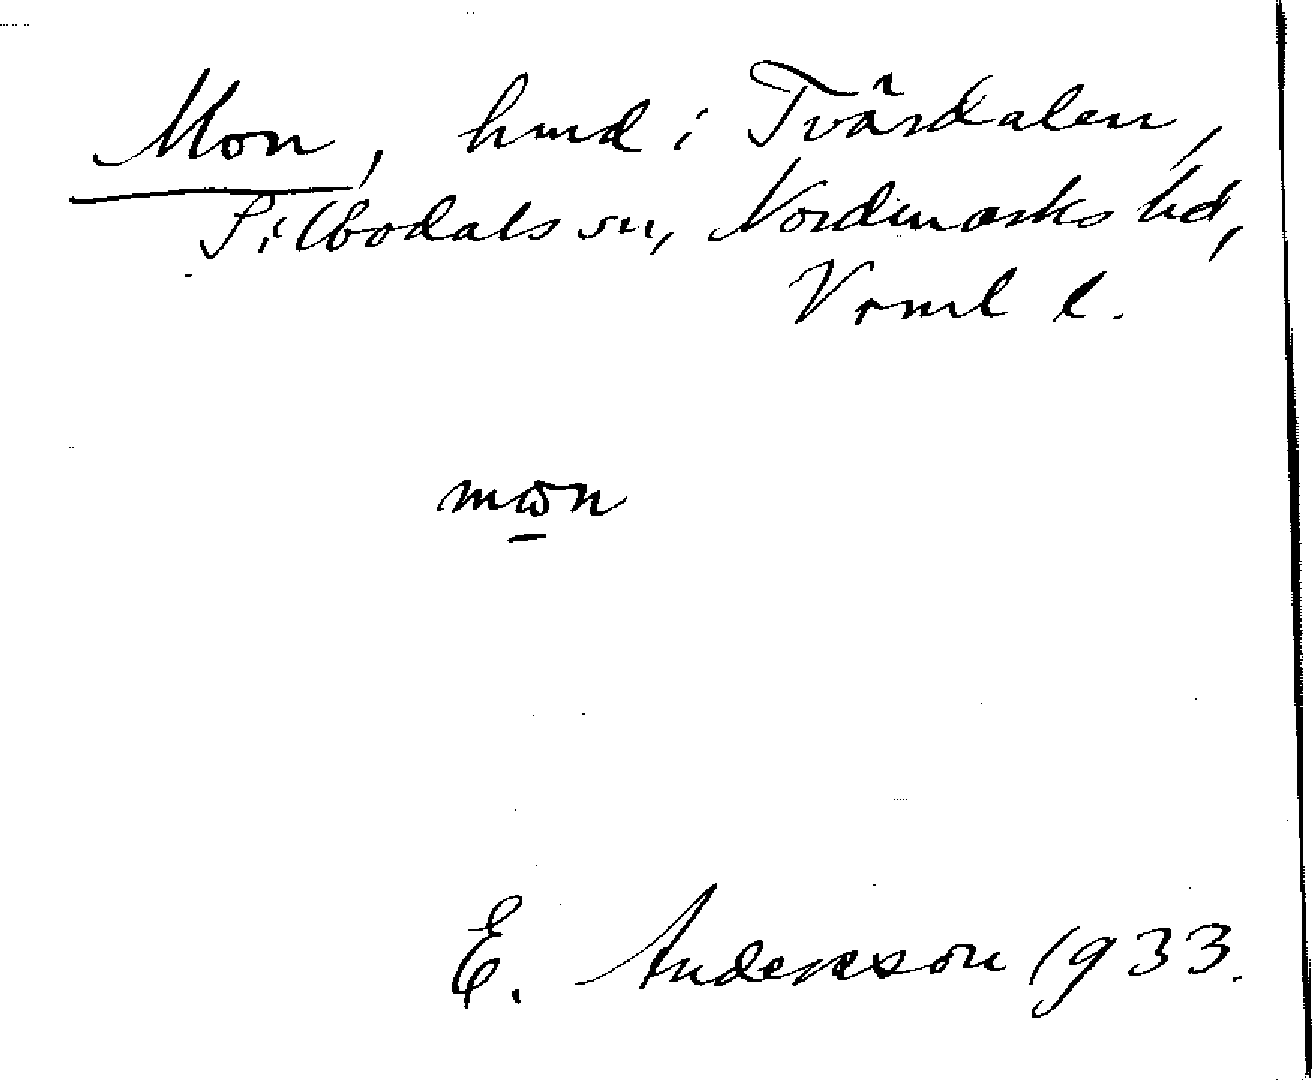 Mon, hmd i Tvärdalen,
Silbodals sn, Nordmarks hd,
Vrml l.
mωn
E. Andersson 1933.